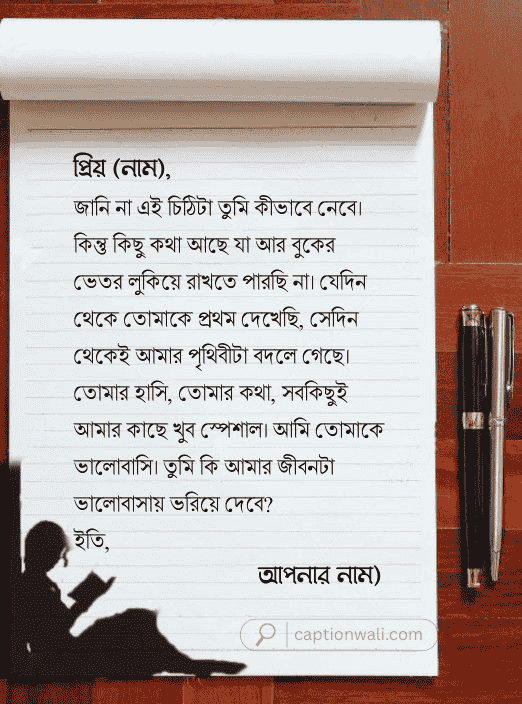 প্রিয় (নাম),
জানি না এই চিঠিটা তুমি কীভাবে নেবে।
কিন্তু কিছু কথা আছে যা আর বুকের
ভেতর লুকিয়ে রাখতে পারছি না। যেদিন
থেকে তোমাকে প্রথম দেখেছি, সেদিন
থেকেই আমার পৃথিবীটা বদলে গেছে।
তোমার হাসি, তোমার কথা, সবকিছুই
আমার কাছে খুব স্পেশাল। আমি তোমাকে
ভালোবাসি। তুমি কি আমার জীবনটা
ভালোবাসায় ভরিয়ে দেবে?
ইতি,
আপনার নাম)
captionwali.com